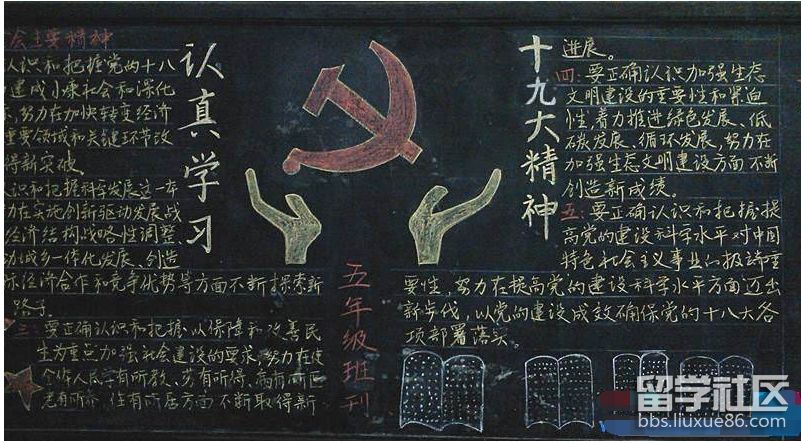 会主要精神
认识和把握党的十八
建成小康社会和深化
努力在加快转变经济
重要领域和关键环节改
得新突破
识和把握科学发展这一
力在实施创新驱动发展战
经济结构战略性调整、
动城乡一体化发展、创造
际经济合作和竞争优势等方面不断探索新
路子。
三:要正确认识和把握以保障和改善民
生为重点加强社会建设的要求,努力在使
全体人民学有所教、劳有所得、病有所医
老有所养 住有所居方面不断取得新
认真学习
十九大精神
五年级班刊
进展。
四:要正确认识加强生态
文明建设的重要性和紧迫
性,着力推进绿色发展、低
碳发展、循环发展,努力在
加强生态文明建设方面不断
创造新成绩。
五:要正确认识和把握提
高党的建设科学水平对中国
特色社会主义事业的极端重
要性,努力在提高党的建设科学水平方面迈出
新步伐,以党的建设成效确保党的十八大各
项部署落实。
留学社区
bbs.liuxue86.com